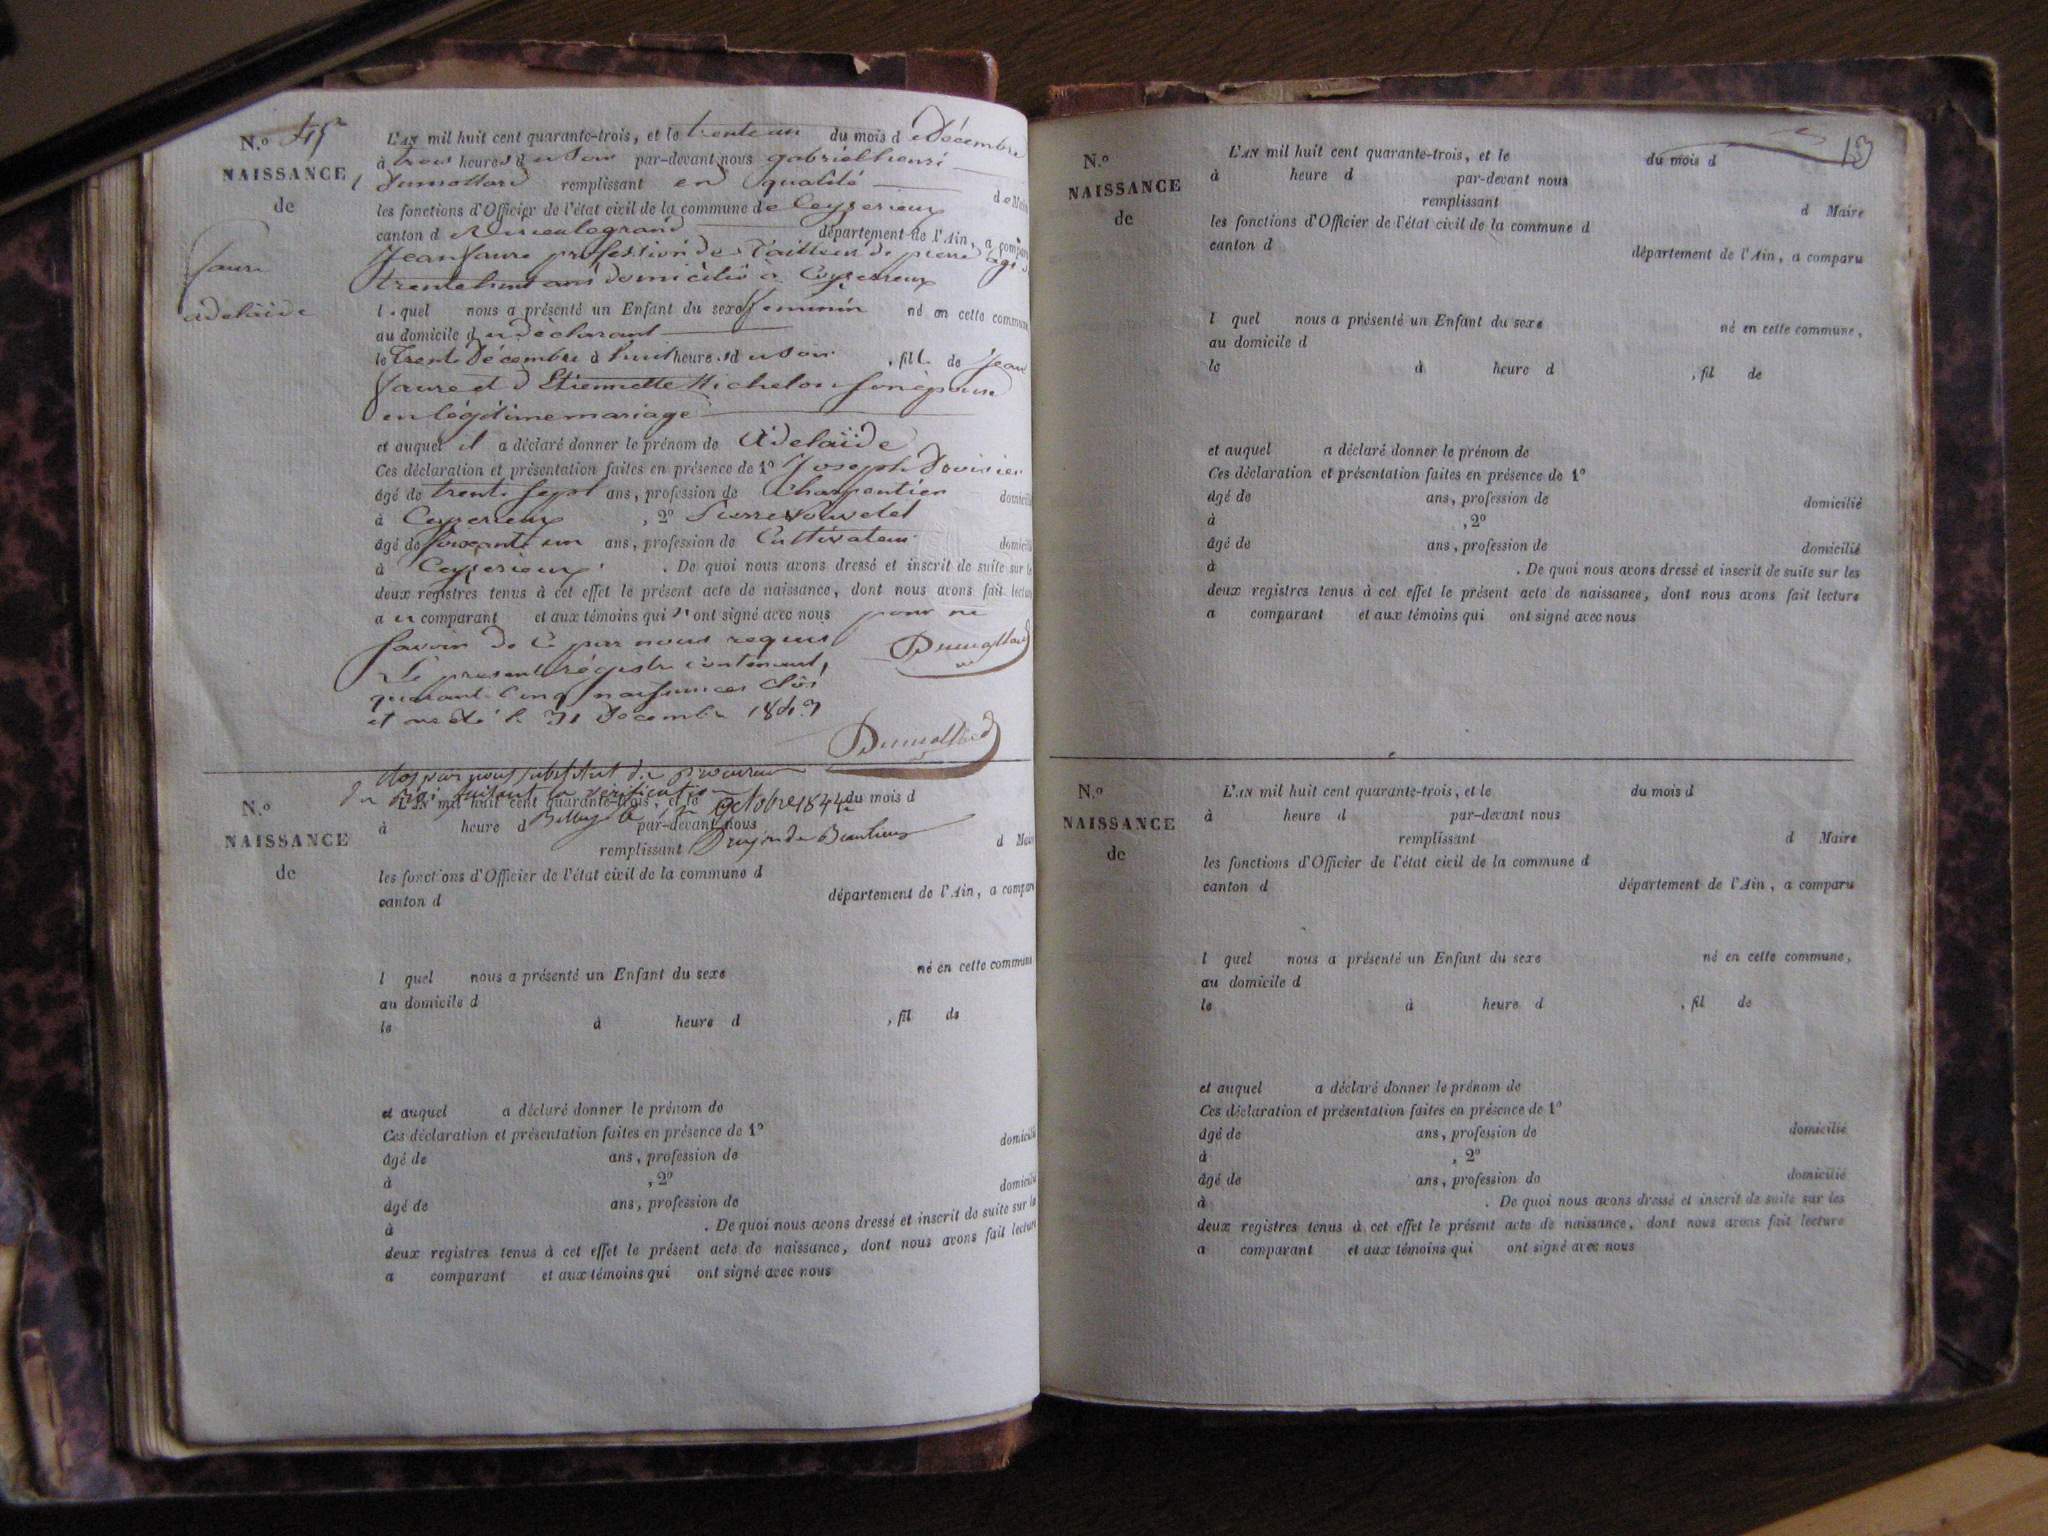 N.º 45
NAISSANCE
de
faure
adelaïde
L'AN mil huit cent quarante-trois, et le trente un du mois d e Décembre
à trois heures d u soir par-devant nous gabriel henri
Dumollard remplissant en qualité de Maire
les fonctions d'Officier de l'état civil de la commune de Ceyzerieux
canton d e Virieu le grand département de l'Ain, a comparu
Jean faure profession de Tailleur de pierre agé de
trente huit ans domicilié à Ceyzerieux
l e quel nous a présenté un Enfant du sexe féminin né en cette commune
au domicile d u déclarant
le Trente Décembre à huit heures d u soir , fille de Jean
faure et d Etiennette Michelon son épouse
en légitime mariage
et auquel il a déclaré donner le prénom de Adelaïde
Ces déclaration et présentation faites en présence de 1º Joseph
âgé de trente sept ans, profession de Charpentier domicilié
à Ceyzerieux , 2º
âgé de soixante un ans, profession de Cultivateur domicilié
à Ceyzerieux . De quoi nous avons dressé et inscrit de suite sur les
deux registres tenus à cet effet le présent acte de naissance, dont nous avons fait lecture
a u comparant et aux témoins qui n'ont signé avec nous pour ne
savoir de ce par nous requis Dumollard
Le présent régistre contenant,
quarante cinq naissances clos
et arrêté le 31 Décembre 1843
Dumollard
Clos par nous substitut du procureur
du Roi suivant la vérification
N.º
NAISSANCE
de
L'AN mil huit cent quarante-trois, et le octobre 1844 du mois d
à heure d Belley le par-devant nous
remplissant d Maire
les fonctions d'Officier de l'état civil de la commune d
canton d département de l'Ain, a comparu
l quel nous a présenté un Enfant du sexe né en cette commune
au domicile d
le à heure d , fil de
et auquel a déclaré donner le prénom de
Ces déclaration et présentation faites en présence de 1º
âgé de ans, profession de domicilié
à , 2º
âgé de ans, profession de domicilié
à . De quoi nous avons dressé et inscrit de suite sur les
deux registres tenus à cet effet le présent acte de naissance, dont nous avons fait lecture
a comparant et aux témoins qui ont signé avec nous
13
N.º
NAISSANCE
de
L'AN mil huit cent quarante-trois, et le du mois d
à heure d par-devant nous
remplissant d Maire
les fonctions d'Officier de l'état civil de la commune d
canton d département de l'Ain, a comparu
l quel nous a présenté un Enfant du sexe né en cette commune,
au domicile d
le à heure d , fil de
et auquel a déclaré donner le prénom de
Ces déclaration et présentation faites en présence de 1º
âgé de ans, profession de domicilié
à , 2º
âgé de ans, profession de domicilié
à . De quoi nous avons dressé et inscrit de suite sur les
deux registres tenus à cet effet le présent acte de naissance, dont nous avons fait lecture
a comparant et aux témoins qui ont signé avec nous
N.º
NAISSANCE
de
L'AN mil huit cent quarante-trois, et le du mois d
à heure d par-devant nous
remplissant d Maire
les fonctions d'Officier de l'état civil de la commune d
canton d département de l'Ain, a comparu
l quel nous a présenté un Enfant du sexe né en cette commune,
au domicile d
le à heure d , fil de
et auquel a déclaré donner le prénom de
Ces déclaration et présentation faites en présence de 1º
âgé de ans, profession de domicilié
à , 2º
âgé de ans, profession de domicilié
à . De quoi nous avons dressé et inscrit de suite sur les
deux registres tenus à cet effet le présent acte de naissance, dont nous avons fait lecture
a comparant et aux témoins qui ont signé avec nous